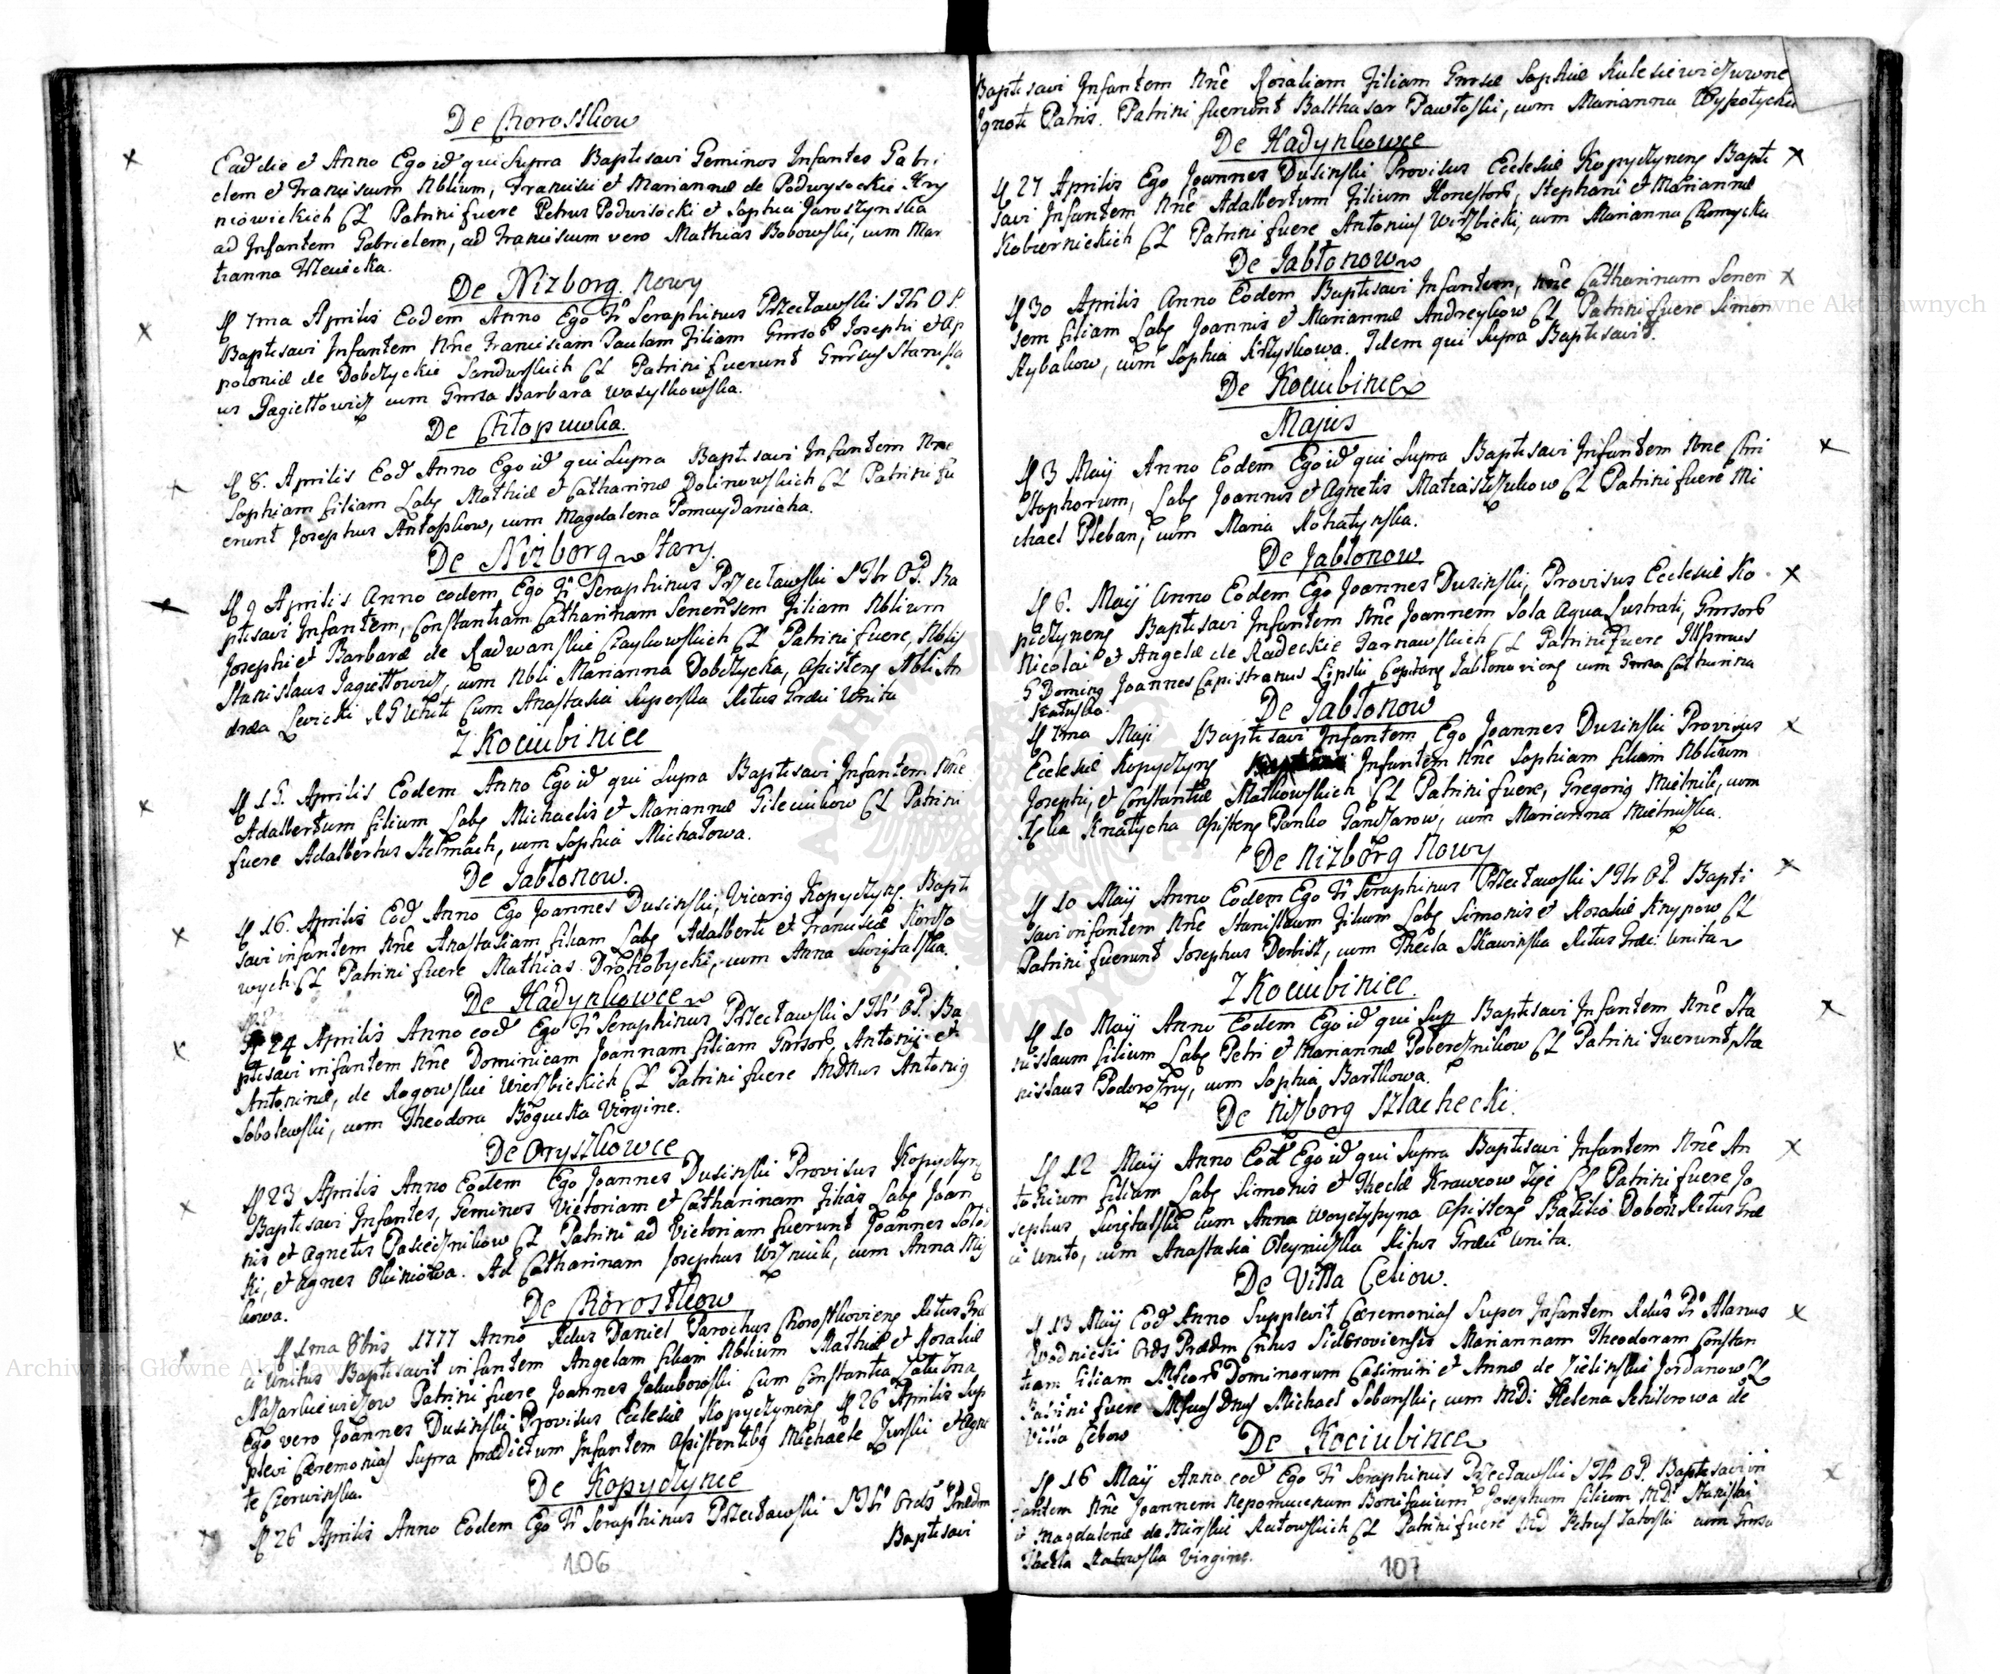 De Chorostkow
Ead die et Anno Ego id qui supra Baptisavi Geminos Infantes Gabri
elem et Franciscum Nblium, Francisci et Mariannæ de Podwysockie Kry
niowieckich CL Patrini fuere Petrus Podwisocki et Sophia Jaroszynska
ad Infantem Gabrielem, ad Franciscum vero Mathias Bobowski, cum Mar
ianna
De Nizborg Nowy
7ma Aprilis Eodem Anno Ego Fr Seraphinus Przecławski STh O P.
Baptisavi Infantem Nne Franciscam Paulam Filiam Gnrsor Josephi et Ap
poloniæ de Dobczyckie CL Patrini fuerunt Gnrsus Stanisla
us Jagiełłowicz cum Gnrsa Barbara Wasylkowska.
De Chłopuwka.
8. Aprilis Eod Anno Ego id qui supra Baptisavi Infantem Nne
Sophiam filiam Labs Mathiæ et Catharinæ Dolinowskich CL Patrini fu
erunt Josephus Antoszkow, cum Magdalena
De Nizborg Stary.
9 Aprilis Anno eodem Ego Fr Seraphinus Przecławski STh OP. Ba
ptisavi Infantem, Constantiam Catharinam Senensem Filiam Nblium
Josephi et Barbaræ de Radwanskie Czaykowskich CL Patrini fuere, Nblis
Stanislaus Jagiełłowicz, cum Nbli Marianna Dobczycka, Assistens Nbli An
drea Lewicki RG Uniti Cum Anastasia Ritus Græci Unita
Z Kociubiniec
15. Aprilis Eodem Anno Ego id qui supra Baptisavi Infantem Nne
Adalbertum filium Labs Michaelis et Mariannæ CL Patrini
fuere Adalbertus Stelmach, cum Sophia Michałowa.
De Jabłonow.
16. Aprilis Eod Anno Ego Joannes Dusinski, Vicarig Kopyczyns. Bapti
savi infantem Nne Anastasiam filiam Labs Adalberti et Franciscæ
wych CL Patrini fuere Mathias Drohobycki, cum Anna Swigtalska.
De Hadynkowce
24 Aprilis Anno eod Ego Fr Seraphinus Przecławski STh OP. Ba
ptisavi infantem Nne Dominicam Joannam filiam Gnrsor Antonij et
Antoninæ, de Rogowskie Wierzbickich CL Patrini fuere MDnus Antonig
Sobolewski, cum Theodora Bogucka Virgine.
De Oryszkowce
23 Aprilis Anno Eodem Ego Joannes Dusinski Provisus Kopyczyn
Baptisavi Infantes, Geminos Victoriam et Catharinam Filias Labs Joan
nis et Agnetis Pasiecznikow CL Patrini ad Victoriam fuerunt Joannes
ki, et Agnes. Ad Catharinam Josephus Woźniak, cum Anna
kowa.
De Chorostkow
1ma 8bris 1777 Anno Rdus Daniel Parochus Chorostkoviens Ritus Græ
ci Unitus Baptisavit infantem Angelam filiam Nblium Mathiæ et Rosaliæ
Nazarkiewiczow Patrini fuere Joannes Jakubowski Cum Constantia Załuzna
Ego vero Joannes Dusinski Provisus Ecclesiæ Kopyczynens 26 Aprilis Sup
plevi Cæremonias Supra prædictum Infantem Assistentibg Michaele Zurski et Agne
te Czerwinska.
De Kopyczynce
26 Aprilis Anno Eodem Ego Fr Seraphinus Przecławski STh Ords Prædm
Baptisavi
106
Baptisavi Infantem Nne Rosaliam Filiam Gnrsæ Sophiæ Kulesiewiczuwne
Ignoti Patris. Patrini fuerunt Balthasar Pawłoski, cum Marianna Wypołycka
De Hadynkowce
27 Aprilis Ego Joannes Dusinski Provisus Ecclesiæ Kopyczynens Bapti
savi Infantem Nne Adalbertum Filium Honestor, Stephani et Mariannæ
Kobiernickich CL Patrini fuere Antonius Wirzbicki, cum Marianna Chomycka
De Jabłonow
30 Aprilis Anno Eodem Baptisavi Infantem, Nne Catharinam Senen
sem filiam Labs Joannis et Mariannæ Andreykow CL Patrini fuere Simon
Rybakow, cum Sophia Krzyskowa. Idem qui supra Baptisavit.
De Kociubince
Majus
3 Maij Anno Eodem Ego id qui supra Baptisavi Infantem Nne Chri
stophorum, Labs Joannis et Agnetis CL Patrini fuere Mi
chael Pleban, cum Maria Rohatynska.
De Jabłonow
6. Maij Anno Eodem Ego Joannes Dusinski, Provisus Ecclesiæ Ko
pyczynens Baptisavi Infantem Nne Joannem Sola Aqua Lustrati, Gnrsorb
Nicolai et Angelæ de Radeckie Tarnawskich CL Patrini fuere Illssmus
Doming Joannes Capistranus Lipski Capitang Jabłonoviens cum Gnrsa Catharina
7ma Maji De Jabłonow
Baptisavi Infantem Ego Joannes Dusinski Provisus
Ecclesiæ Kopyczyns Infantem Nne Sophiam filiam Nblium
Josephi, et Constantiæ Małkowskich CL Patrini fuere, Gregorig Mielnik, cum
Assistens Panko Ganczarow, cum Marianna Mielniczka.
De Nizborg Nowy
10 Maij Anno Eodem Ego Fr Seraphinus Przecławski STh OP. Bapti
savi infantem Nne Stanislaum Filium Labs Simonis et Rosaliæ Knypow CL
Patrini fuerunt Josephus, cum Thecla Skawinska Ritus Græci Unita
Z Kociubiniec.
10 Maij Anno Eodem Ego id qui Sup Baptisavi Infantem Nne Sta
nislaum filium Labs Petri et Mariannæ Pobereznikow CL Patrini fuerunt, Sta
nislaus Podorozny, cum Sophia Bartkowa.
De Nizborg Szlachecki.
12 Maij Anno Eod Ego id qui supra Baptisavi Infantem Nne An
tonium filium Labs Simonis et Theclæ Krawcow CL Patrini fuere Jo
sephus Swigtalski cum Anna Assistens Basilio Ritus Græ
ci Unito, cum Anastasia Oleyniczka Ritus Græci Unita.
De Villa Celiow.
13 Maij Eod Anno Supplevit Cæremonias Super Infantem Rdus Pr Alanus
Ords Prædm Cntus Sidoroviensis Mariannam Theodoram Constan
tiam filiam Dominorum Casimiri et Annæ de Zielinskie Jordanow CL
Patrini fuere Dnus Michael Sobanski, cum MD: Helena de
Villa Celiow
De Kociubince
16 Maij Anno eod Ego Fr Seraphinus Przecławski STh OP. Baptisavi in
fantem Nne Joannem Nepomucenum Bonifacium Josephum filium MD: Stanislai
et Magdalenæ de Mirskie Ratowskich CL Patrini fuere MD Petrus cum Gnrsa
Thecla Ratowska Virgine.
107
Archiwum Główne Akt Dawnych
Archiwum Główne Akt Dawnych